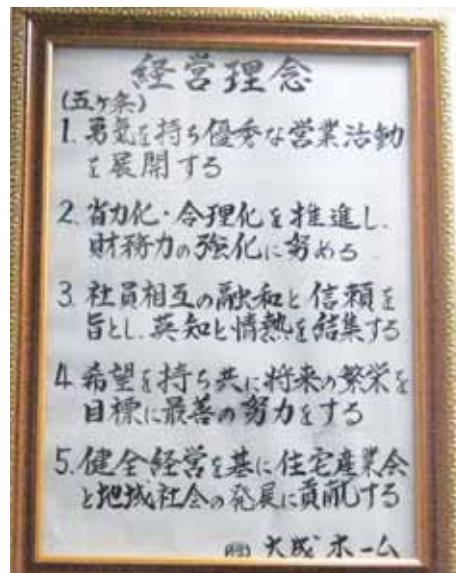 経営理念
(五ヶ条)
1. 勇気を持ち優秀な営業活動
を展開する
2. 省力化・合理化を推進し、
財務力の強化に努める
3. 社員相互の融和と信頼を
旨とし、英知と情熱を結集する
4. 希望を持ち共に将来の繁栄を
目標に最善の努力をする
5. 健全経営を基に住宅産業会
と地域社会の発展に貢献する
大成ホーム